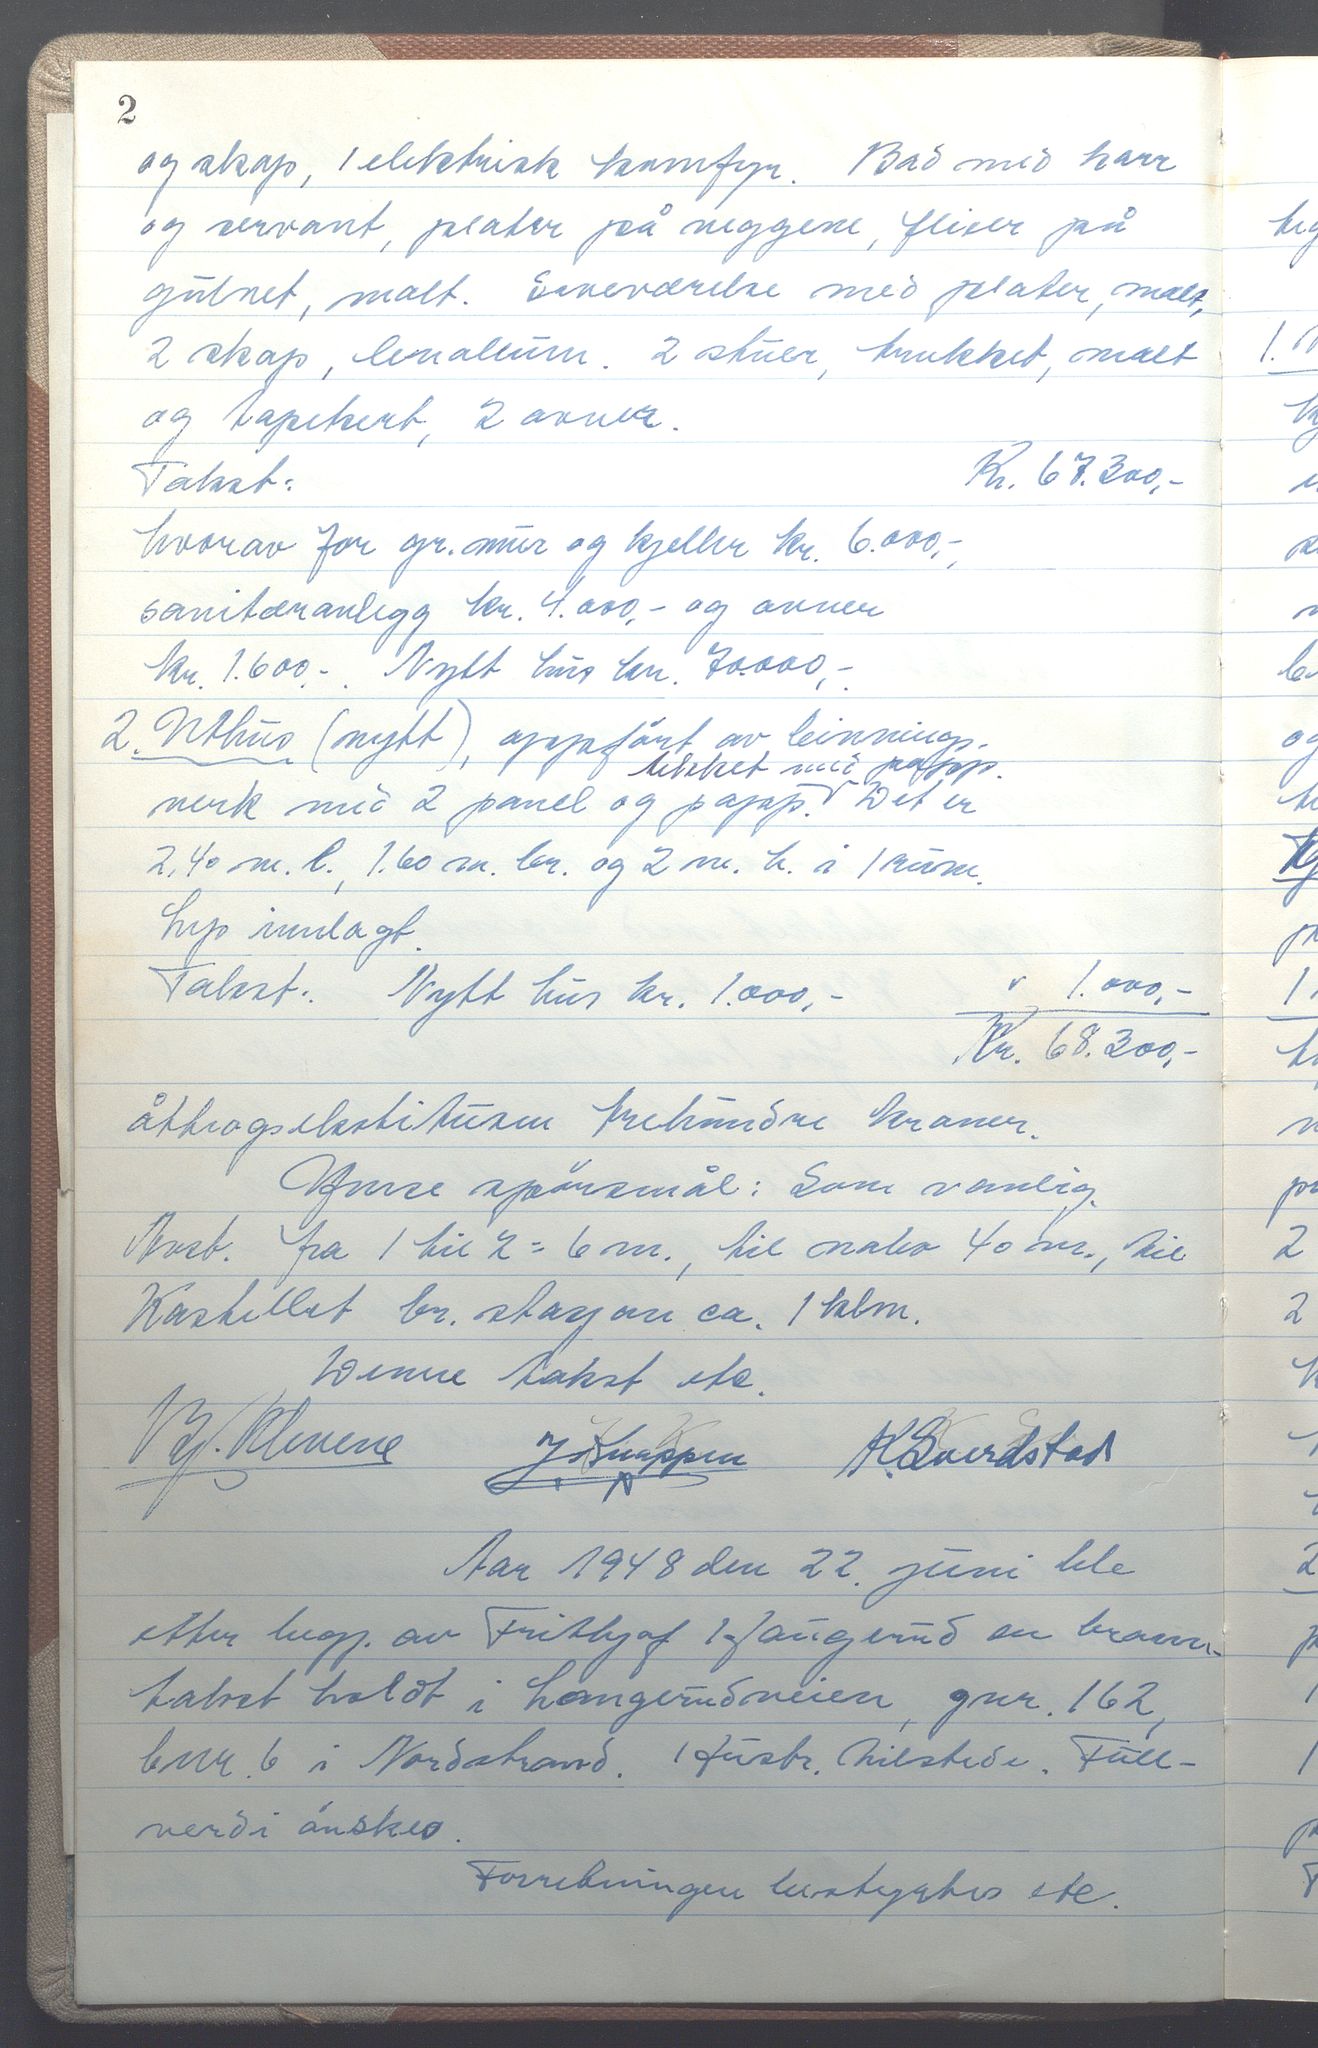 2
og skap, 1 elektrisk komfyr. Bad med karr
og servant, plater på veggene, fliser på
gulvet, malt. Soveværelse med plater, malt,
2 skap, linoleum. 2 stuer, trukket, malt
og tapetsert, 2 ovner.
Takst: Kr. 67.300,-
hvorav for gr.mur og kjeller kr. 6.000,-,
sanitæranlegg kr. 4.000,- og ovner
kr. 1.600,-. Nytt hus kr. 70.000,-.
2. Uthus (nytt), oppført av binnings-
tekket med papp.
verk med 2 panel og papp. Det er
2,40 m. l., 1.60 m. br. og 2 m. h. i 1 rum.
Lys innlagt.
Takst: Nytt hus kr. 1.000,- " 1.000,-
Kr. 68.300,-
åttiogsekstitusen trehundre kroner.
Øvrse spørsmål: Som vanlig.
Avst. fra 1 til 2 = 6 m., til nabo 40 m., til
Kastellet br. stasjon ca. 1 klm.
Denne takst etc.
Bj. Klevene J. Knappen K. Sverdstad
Aar 1948 den 22. juni ble
etter begj. av Frithjof Haugerud en brann-
takst holdt i Langerudveien, gnr. 162,
bnr. 6 i Nordstrand. Hustr. tilstede. Full-
verdi ønskes.
Forretningen bestyrtes etc.